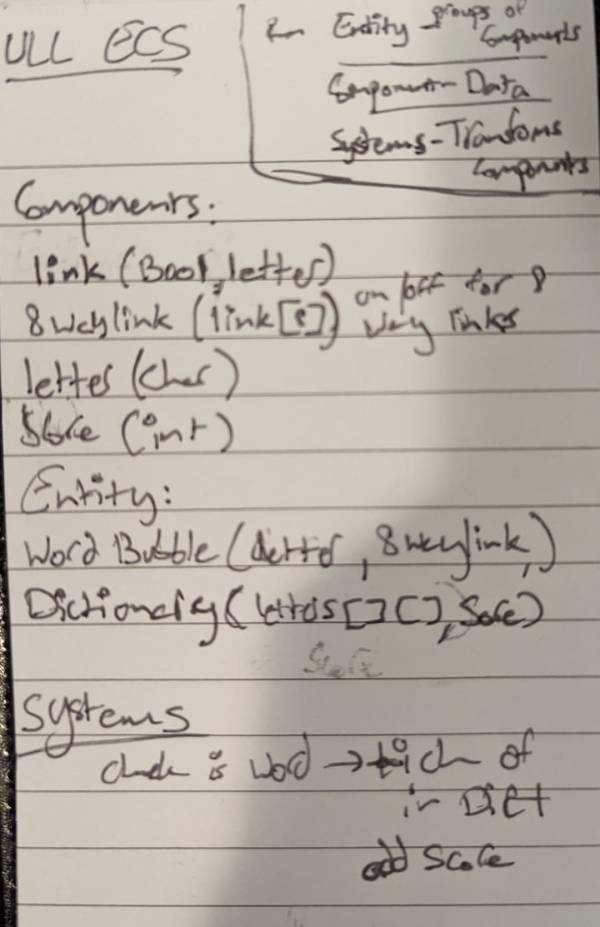 ULL ECS
Entity - groups of
Components
Component - Data
Systems - Transfoms
Components
Components:
link (Bool, letter)
8 way link (link[8]) on/off for 8
way links
letter (char)
Score (int)
Entity:
Word Bubble (letter, 8 way link,)
Dictionary (letters [] [], Score)
Score
Systems
check is word → tick of
in Dict
add score